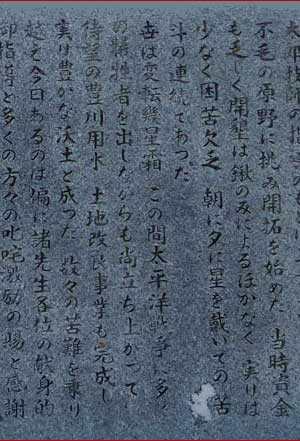 不毛の原野に挑み開拓を始めた 当時資金
も乏しく開墾は鍬のみによるほかなく 実りは
少なく困苦欠乏 朝に夕に星を戴いての苦
斗の連続であつた
世は変転幾星霜 この間太平洋戦争に多く
の犠牲者を出しながらも尚立ち上がつて
待望の豊川用水 土地改良事業も完成し
実り豊かな沃土と成つた 数々の苦難を乗り
越え今日あるのは偏に諸先生各位の献身的
御指導と多くの方々の叱咤激励の賜と感謝